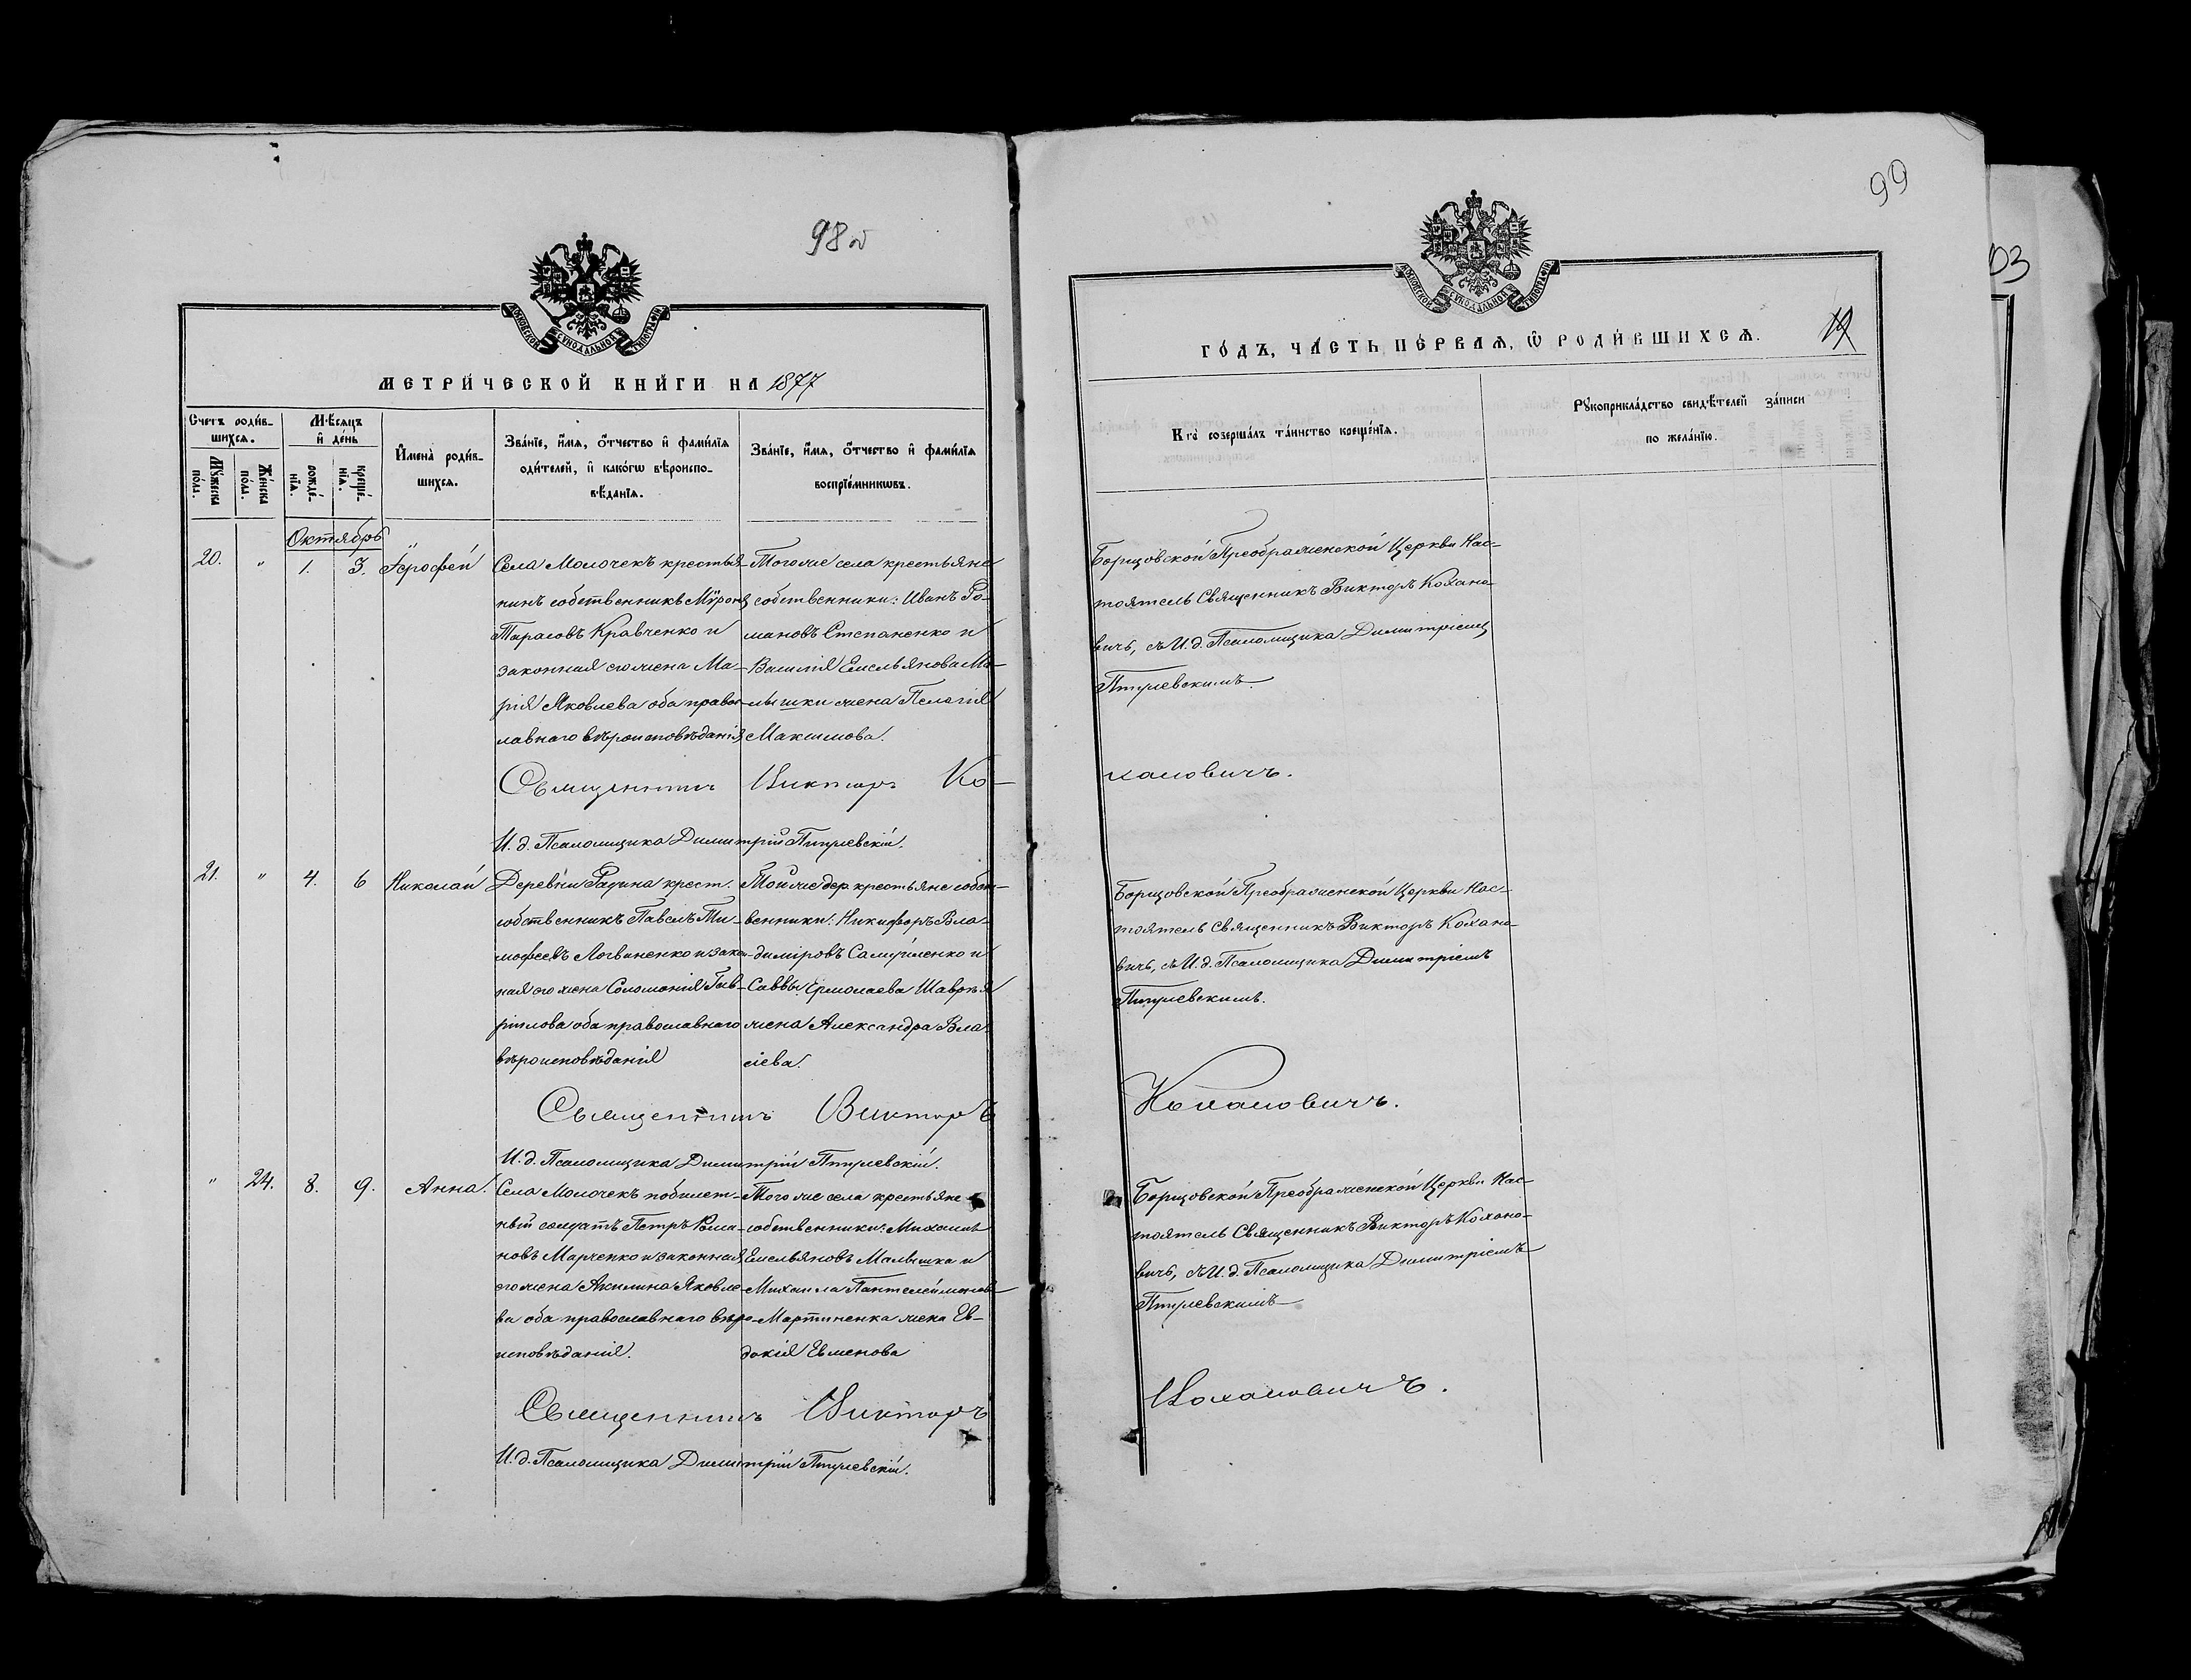 98 об
МОСКОВСКОЙ СѴНОДАЛЬНОЙ ТИПОГРАФІИ
МЕТРИЧЕСКОЙ КНИГИ НА 1877
Счетъ родив-
шихся.
Мꙋжеска
пола.
Женска
пола.
Мѣсяцъ
и день
рожде-
нія.
креще-
нія.
Имена родив-
шихся.
Званіе, имя, отчество и фамилія
одителей, и какогѡ вѣроиспо-
вѣданія.
Званіе, имя, отчество и фамилія
воспріемникѡвъ.
Октябрь
20. " 1. 3. Іерофей
Села Молочекъ крестья-
нинъ собственникъ Мѵронъ
Тарасовъ Кравченко и
законная его жена Ма-
рія Яковлева оба правос-
лавнаго вѣроисповѣданія
Тогоже села крестьяне
собственники: Иванъ Ро-
мановъ Степаненко и
Василія Емельянова Ма-
лышки жена Пелагія
Максимова.
Священникъ Викторъ Ко-
И. д. Псаломщика Димитрій Птушевскій.
21. " 4. 6 Николай
Деревни Рядина крест.
собственникъ Павелъ Ти-
мофеевъ Логвиненко и закон-
ная его жена Соломонія Гав-
рилова оба православнаго
вѣроисповѣданія
Той же дер. крестьяне собст-
венники: Никифоръ Вла-
диміровъ Самуйленко и
Саввы Ермолаева
жена Александра Вла-
сіева.
Священникъ Викторъ
И. д. Псаломщика Димитрій Птушевскій.
" 24. 8. 9. Анна.
Села Молочекъ побилет-
ный солдатъ Петръ Рома-
новъ Марченко и законная
его жена Акилина Яковле-
ва оба православнаго вѣро-
исповѣданія.
Того же села крестьяне
собственники: Михаилъ
Емельяновъ Малышка и
Михаила Пантелеймонова
Мартиненка жена Ев-
докія Евменова
Священникъ Викторъ
И. д. Псаломщика Димитрій Птушевскій.
99
МОСКОВСКОЙ СѴНОДАЛЬНОЙ ТИПОГРАФІИ
ГОДЪ, ЧАСТЬ ПЕРВАЯ, Ѡ РОДИВШИХСЯ.
Кто совершалъ таинство крещенія.
Рꙋкоприкладство свидѣтелей записи
по желанію.
Борщовской Преображенской Церкви Нас-
тоятель Священникъ Викторъ Кохано-
вичъ, съ И. д. Псаломщика Димитріемъ
Птушевскимъ.
хановичъ.
Борщовской Преображенской Церкви Нас-
тоятель Священникъ Викторъ Кохано-
вичъ, съ И. д. Псаломщика Димитріемъ
Птушевскимъ.
Кохановичъ.
Борщовской Преображенской Церкви Нас-
тоятель Священникъ Викторъ Кохано-
вичъ, съ И. д. Псаломщика Димитріемъ
Птушевскимъ
Кохановичъ.
03